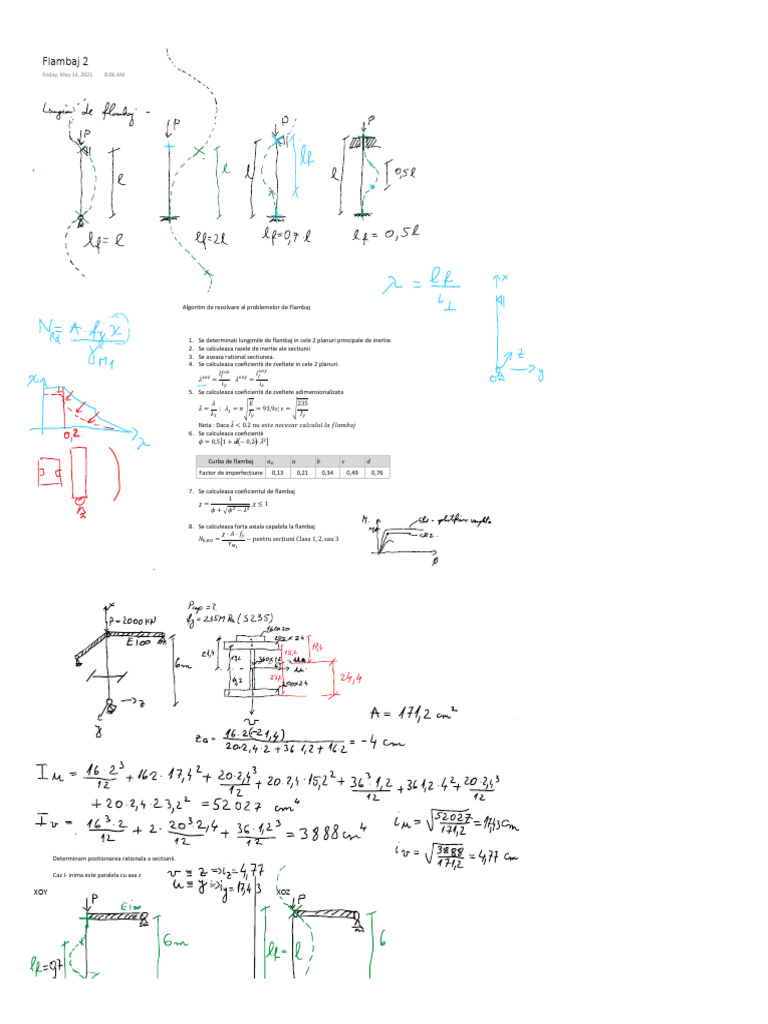 Flambaj 2
Friday, May 14, 2021 8:06 AM
Lungimi de flambaj -
P P P P
l l l lf l 0,5l
lf = l lf=2l lf=0,7·l lf = 0,5l
λ = lf / i⊥
x
z
y
Algoritm de rezolvare al problemelor de Flambaj
N_Rd = A·fy χ / γM1
1. Se determinati lungimile de flambaj in cele 2 planuri principale de inertie.
2. Se calculeaza razele de inertie ale sectiunii
3. Se aseaza rational sectiunea.
4. Se calculeaza coeficientii de zveltete in cele 2 planuri.
5. Se calculeaza coeficientii de zveltete adimensionalizata
λ̄ = λ/λ₁ ; λ₁ = π √(E/fy) = 93,9ε; ε = √(235/fy)
Nota : Daca λ̄ < 0.2 nu este necesar calculul la flambaj
6. Se calculeaza coeficientii
χ
0,2
λ
x
Curba de flambaj a₀ a b c d
Factor de imperfecțiune 0,13 0,21 0,34 0,49 0,76
7. Se calculeaza coeficientul de flambaj
χ = 1 / (ϕ + √(ϕ² − λ̄²)) χ ≤ 1
8. Se calculeaza forta axiala capabila la flambaj
N_b,Rd = χ · A · fy / γM1 − pentru secțiuni Clasa 1, 2, sau 3
x
P=2000KN
EI=∞
6m
z
y
fy = 235MPa (S235)
160x20
202x24
360x12
200x24
21,4
15,2
17,4
24,4
u
v
A = 171,2 cm²
z_G = 16·2(-21,4) / (20·2,4·2 + 36·1,2 + 16·2) = -4 cm
I_u = 16·2³/12 + 16·2·17,4² + 20·2,4³/12 + 20·2,4·15,2² + 36³·1,2/12 + 36·1,2·4² + 20·2,4³/12
+ 20·2,4·23,2² = 52027 cm⁴
I_v = 16³·2/12 + 2·20³·2,4/12 + 36·1,2³/12 = 3888 cm⁴
i_u = √(52027/171,2) = 17,43 cm
i_v = √(3888/171,2) = 4,77 cm
Determinam positionarea rationala a sectiunii.
Caz I- inima este paralela cu axa z
v ≡ z => i_z = 4,77
u ≡ y => i_y = 17,43
XOY XOZ
P EI=∞ P
6m lf = l 6
lf = 0,7